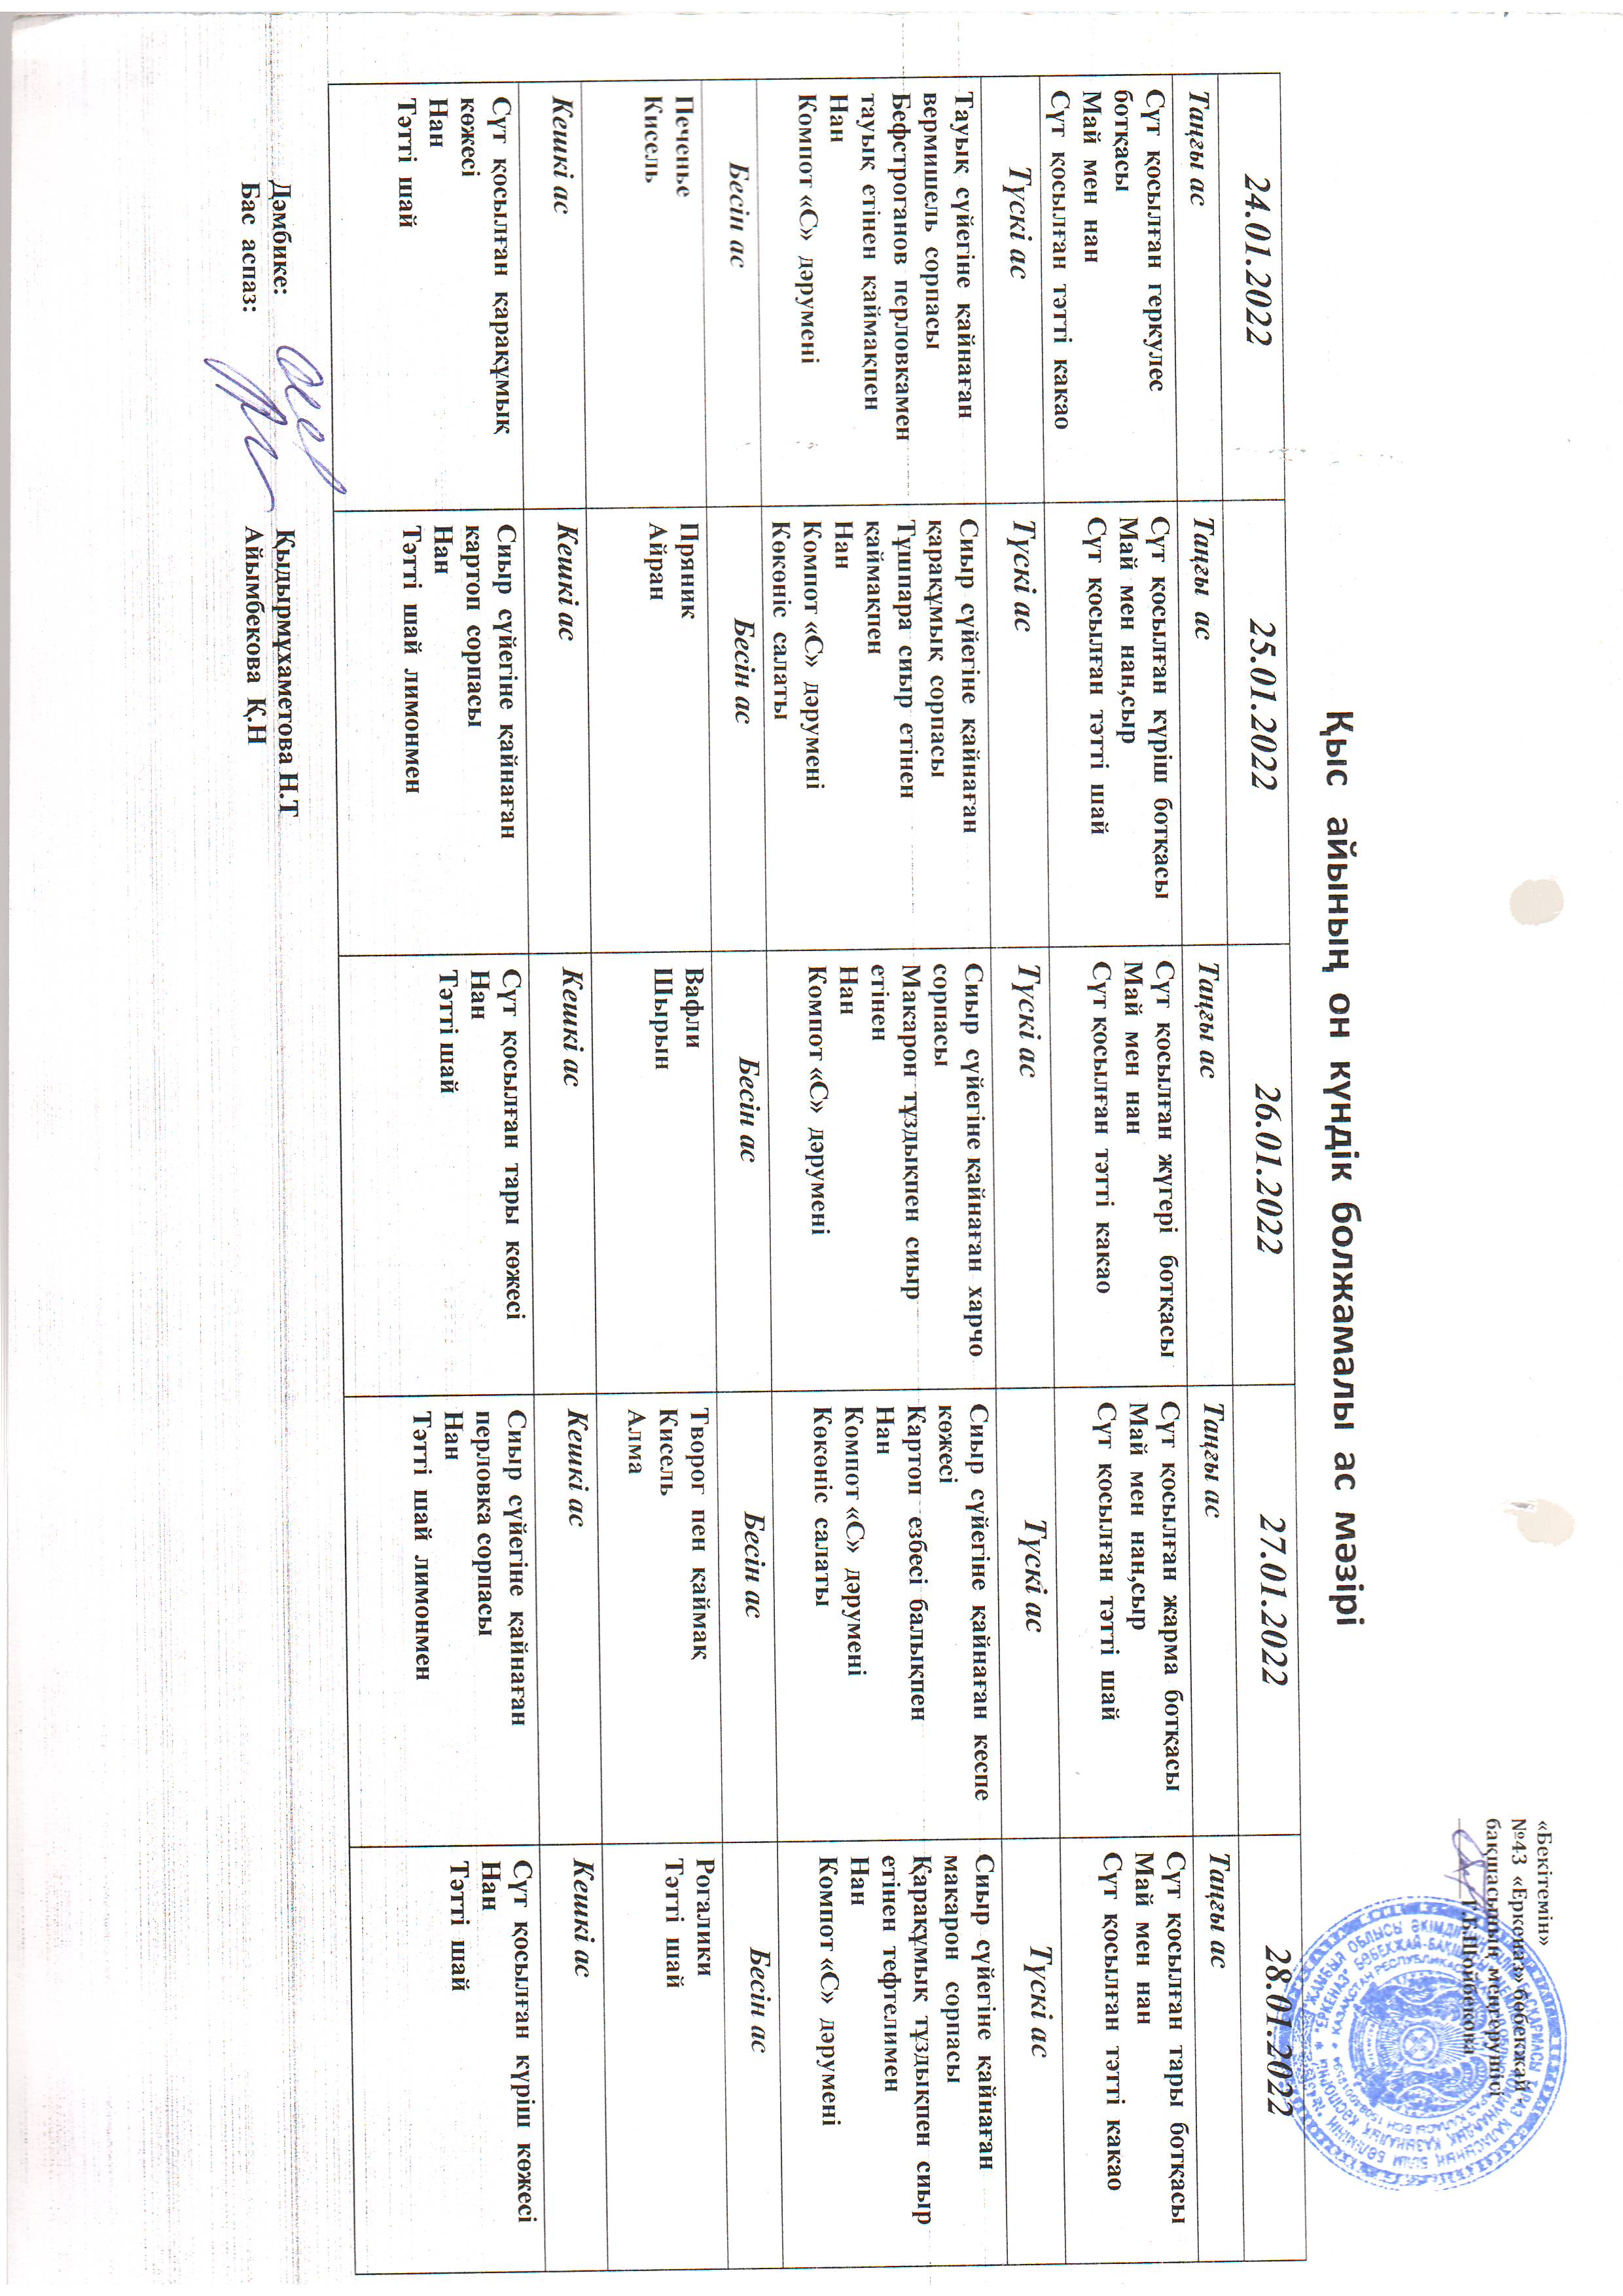 «Бекітемін»
№43 «Еркеназ» бөбекжай
бақшасының меңгерушісі
Г.Б.Шойбекова
Қыс айының он күндік болжамалы ас мәзірі
24.01.2022
25.01.2022
26.01.2022
27.01.2022
28.01.2022
Таңғы ас
Таңғы ас
Таңғы ас
Таңғы ас
Таңғы ас
Сүт қосылған геркулес
ботқасы
Май мен нан
Сүт қосылған тәтті какао
Сүт қосылған күріш ботқасы
Май мен нан,сыр
Сүт қосылған тәтті шай
Сүт қосылған жүгері ботқасы
Май мен нан
Сүт қосылған тәтті какао
Сүт қосылған жарма ботқасы
Май мен нан,сыр
Сүт қосылған тәтті шай
Сүт қосылған тары ботқасы
Май мен нан
Сүт қосылған тәтті какао
Түскі ас
Түскі ас
Түскі ас
Түскі ас
Түскі ас
Тауық сүйегіне қайнаған
вермишель сорпасы
Бефстроганов перловкамен
тауық етінен қаймақпен
Нан
Компот «С» дәрумені
Сиыр сүйегіне қайнаған
қарақұмық сорпасы
Тұшпара сиыр етінен
қаймақпен
Нан
Компот «С» дәрумені
Көкөніс салаты
Сиыр сүйегіне қайнаған харчо
сорпасы
Макарон тұздықпен сиыр
етінен
Нан
Компот «С» дәрумені
Сиыр сүйегіне қайнаған кеспе
көжесі
Картоп езбесі балықпен
Нан
Компот «С» дәрумені
Көкөніс салаты
Сиыр сүйегіне қайнаған
макарон сорпасы
Қарақұмық тұздықпен сиыр
етінен тефтелимен
Нан
Компот «С» дәрумені
Бесін ас
Бесін ас
Бесін ас
Бесін ас
Бесін ас
Печенье
Кисель
Пряник
Айран
Вафли
Шырын
Творог пен қаймақ
Кисель
Алма
Рогалики
Тәтті шай
Кешкі ас
Кешкі ас
Кешкі ас
Кешкі ас
Кешкі ас
Сүт қосылған қарақұмық
көжесі
Нан
Тәтті шай
Сиыр сүйегіне қайнаған
картоп сорпасы
Нан
Тәтті шай лимонмен
Сүт қосылған тары көжесі
Нан
Тәтті шай
Сиыр сүйегіне қайнаған
перловка сорпасы
Нан
Тәтті шай лимонмен
Сүт қосылған күріш көжесі
Нан
Тәтті шай
Дәмбике: Қыдырмұхаметова Н.Т
Бас аспаз: Айымбекова Қ.Н